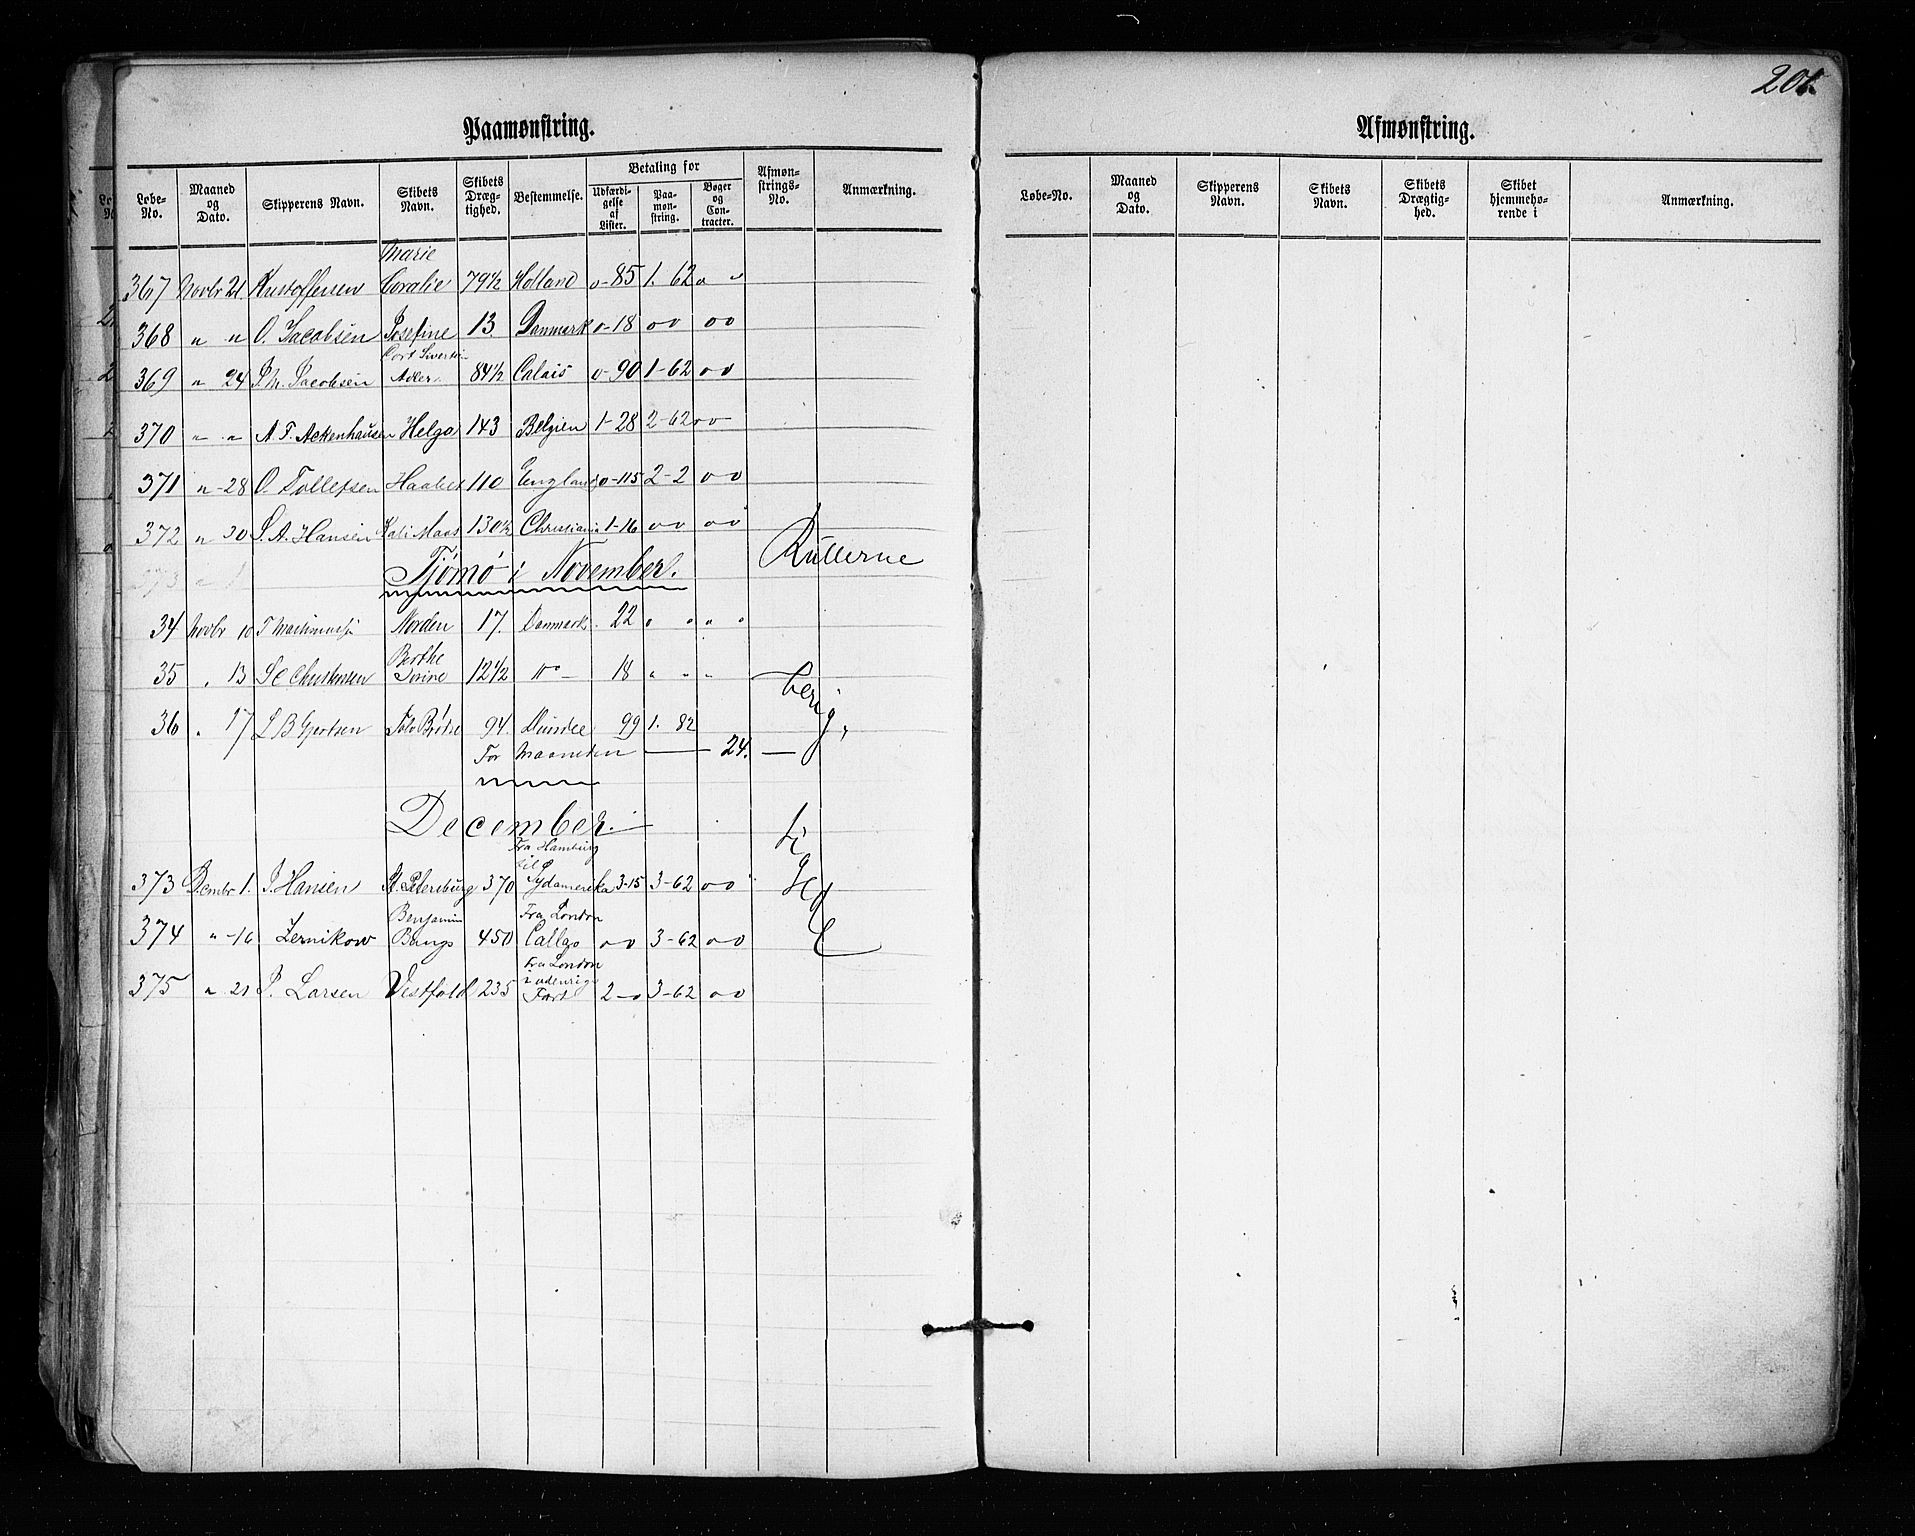 201.
Paamønstring.
Løbe-No. Maaned og Dato. Skipperens Navn. Skibets Navn. Skibets Dræg-tighed. Bestemmelse. Betaling for Udfærdi-gelse af Lister. Paa-mon-string. Bøger og Con-tracter. Afmøn-strings-No. Anmærkning.
367 Novbr 21 Kristoffersen Marie Coralie 79½ Holland 0-85 1. 62 " "
368 " " O. Jacobsen Josefine 13 Danmark 0-18 00 00
369 " 24 Jacobsen Cort Sivertsen Adler. 84½ Calais 0-90 1-62 00
370 " " A. F. Ackenhausen Helga 143 Belgien 1-28 2-62 00
371 " -28 O. Tollefsen Haabet 110 England 0-115 2-2 00
372 " 30 S. A. Hansen Maas 130½ Christiania 1-16 00 00
373 " 1
Tjømø i November. Rullerne
34 Novbr 10 T Norden 17. Danmark . 22 " " " "
35 . 13 Christensen Berthe Serine 12½ "- 18 " " "
36 . 17 L B Gjertsen Brødre 94. Dundee 99 1. 82
For Maaneden — 24. —
berig,
December.
373 Decmbr 1. J. Hansen St. Petersburg 370 Fra Hamburg til Sydamerika 3-15 3-62 00
tigede
374 " -16 Zernikow Benjamin Bangs 450 Fra London Callao 00 3-62 00
375 " 21 P. Larsen Vestfold 235 Fra London i udenrigs Fart 2-0 3-62 00
Afmønstring.
Løbe-No. Maaned og Dato. Skipperens Navn. Skibets Navn. Skibets Drægtig-hed. Skibet hjemmehø-rende i Anmærkning.